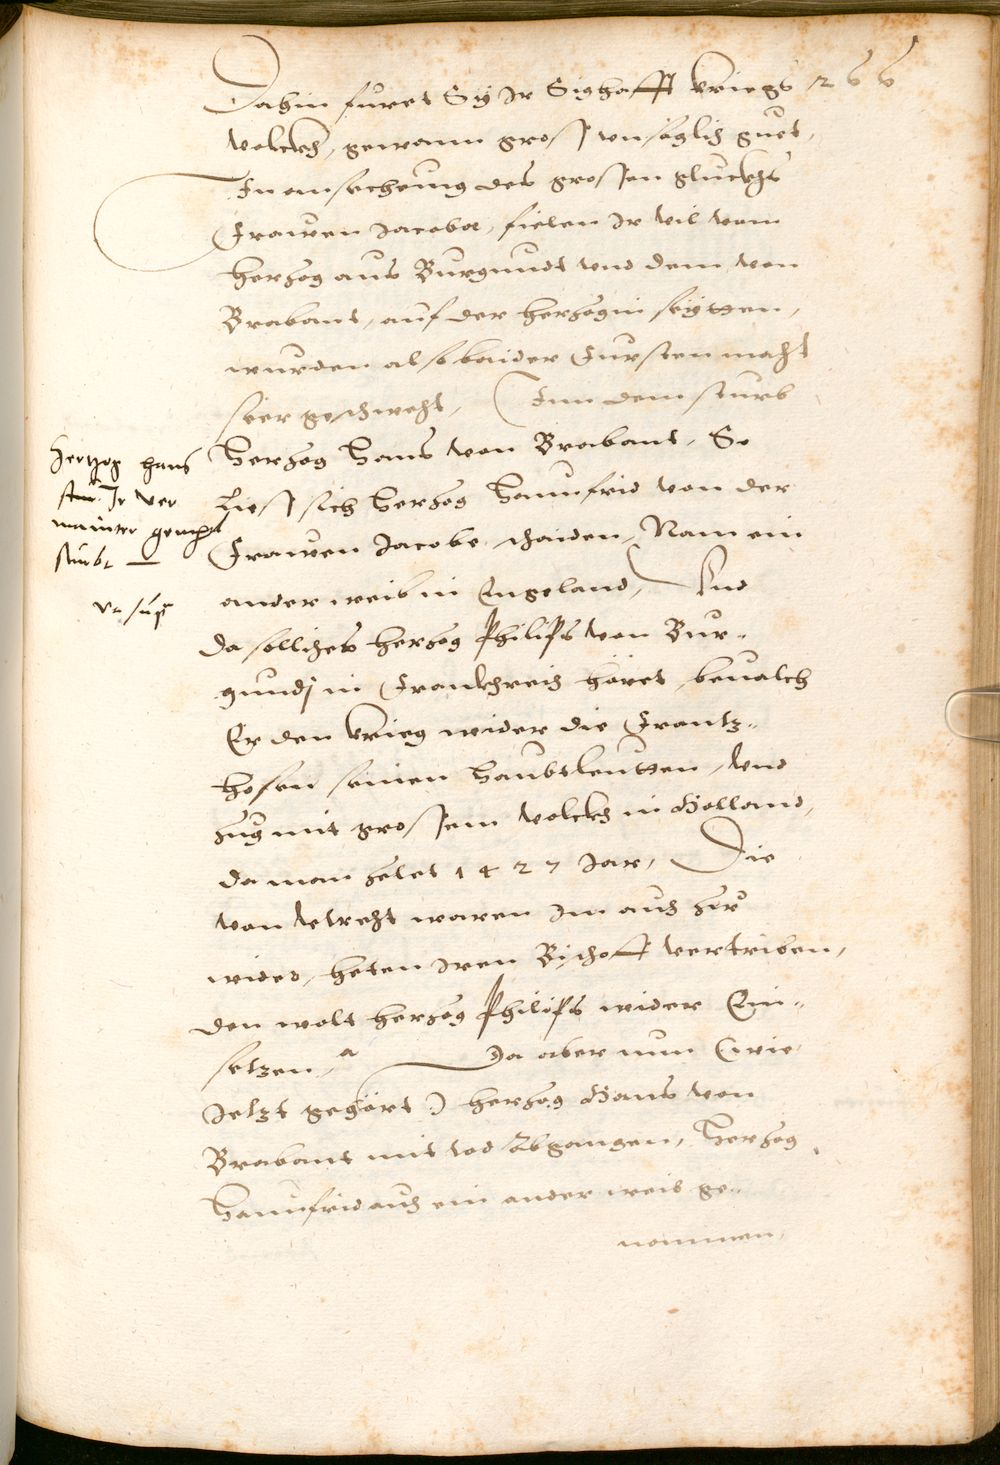 266
Dahin furet Sÿ Ir Sighafft kriegs
volckh, gewann gross vnsäglich guet,
In ansechung des grossen gluckhs
Frawen Jacoba, fielen Ir vil vom
herzog aus Burgundt vnd dem von
Brabant, auf der herzogin seÿtten,
wurden also baider Fursten macht
seer geschwecht, Inn dem sturb
Herzog Hans von Brabant, So
Liess sich Herzog Haunfrid von der
Frawen Jacobe schaiden, Nam ein
ander weib in Engeland, Vnd
da solliches herzog Philips von Bur-
gundj in Franckhreich höret, beualch
Er den krieg wider die Frantz-
hosen seinen Haubtleutten, Vnd
zug mit grossem volckh in Holland,
da man zelet 1427 Jar, Die
von Vtrecht waren Im auch zu
wider, heten Iren Bischoff vertriben,
den wolt herzog Philips wider Ein-
setzen, Da aber nun (wie
Jetzt gehört) herzog Hans von
Brabant mit tod Abgangen, Herzog
Haunfrid auch ein ander weib ge-
nommen,
Hertzog Hans
Ir ver
mainter gemahl
stirbt
vt supra